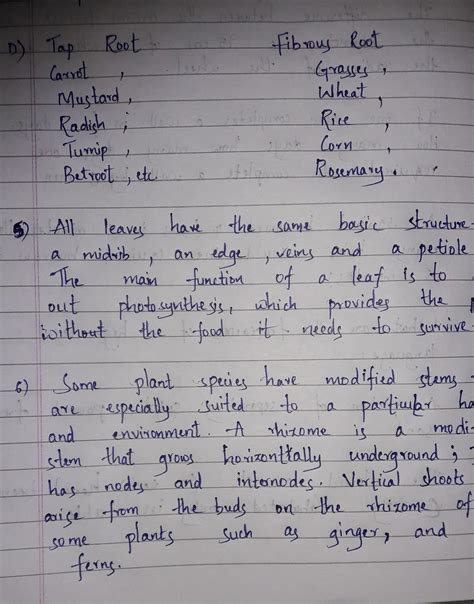 D) Tap Root Fibrous Root
Carrot , Grasses ,
Mustard , Wheat ,
Radish ; Rice ,
Turnip , Corn ,
Betroot , etc. Rosemary .
5) All leaves have the same basic structure -
a midrib , an edge , veins and a petiole
The main function of a leaf is to
out photosynthesis, which provides the
without the food it needs to survive
6) Some plant species have modified stems -
are especially suited to a particular ha
and environment. A rhizome is a modi-
stem that grows horizontially underground ;
has nodes and internodes. Vertial shoots
arise from the buds on the rhizome of
some plants such as ginger, and
ferns.